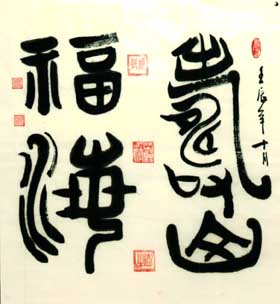 壬辰年十月
壽山
福海